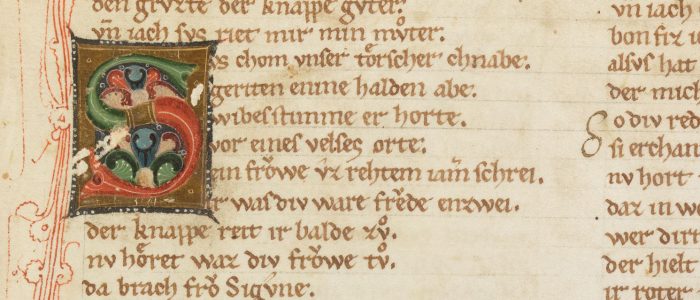 den grvzte der knappe gvter.
vn̄ iach svs riet mir min mv̊ter.
S
vs chom vnser tôrscher chnabe.
geriten einne halden abe.
wibes stimme er horte.
vor eines velses orte.
ein frôwe vz rehtem iam̄ schrei.
ir was div ware frêde enzwei.
der knappe reit ir balde zv̊.
nv hôret waz div frôwe tv̊.
da brach frô Sigvne.
vn iach
bon fiz i
alsvs hat
der mich
So div red
si erchan
nv hort
daz in w
wer dirt
der hielt
ir roter